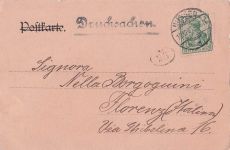 Postkarte. Drucksachen.
Signora
Nella Borgoguini
Florenz (Italien)
Via Ghibelina 16.